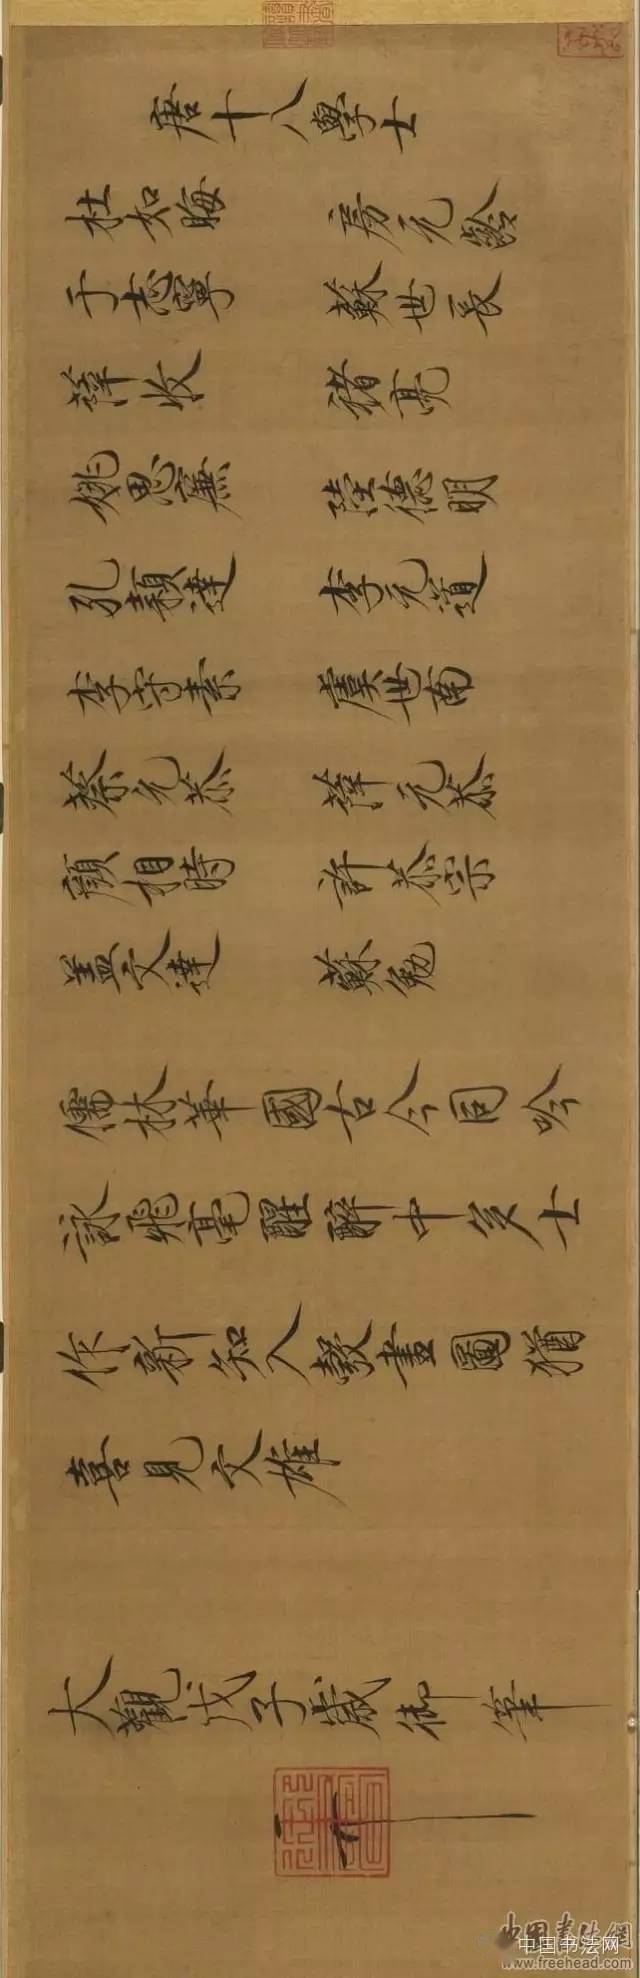 唐十八學士
杜如晦 房元齡
于志寧 蘇世長
薛收 褚亮
姚思廉 陸德明
孔穎達 李元道
李守素 虞世南
蔡允恭 薛元恭
顏相時 許恭宗
蓋文達 蘇勉
儒林華國古今同吟
詠飛毫醒醉中多士
作新知入彀畫圖猶
喜見文雄
大觀戊子歲御筆
中国书法网
中国书法网
www.freehead.com